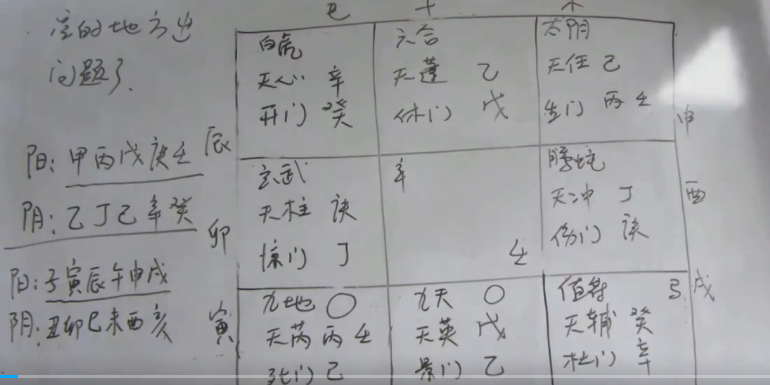 住的地方出
问题了.
阳: 甲丙戊庚壬
阴: 乙丁己辛癸
阳: 子寅辰午申戌
阴: 丑卯巳未酉亥
巳 午 未
辰
卯
寅
白虎
天心 辛
开门 癸
六合
天蓬 乙
休门 戊
太阴
天任 己
生门 丙壬
申
玄武
天柱 庚
惊门 丁
辛
壬
腾蛇
天冲 丁
伤门 庚
酉
九地 〇
天芮 丙壬
死门 己
九天 〇
天英 戊
景门 乙
值符
天辅 癸
杜门 辛
戌